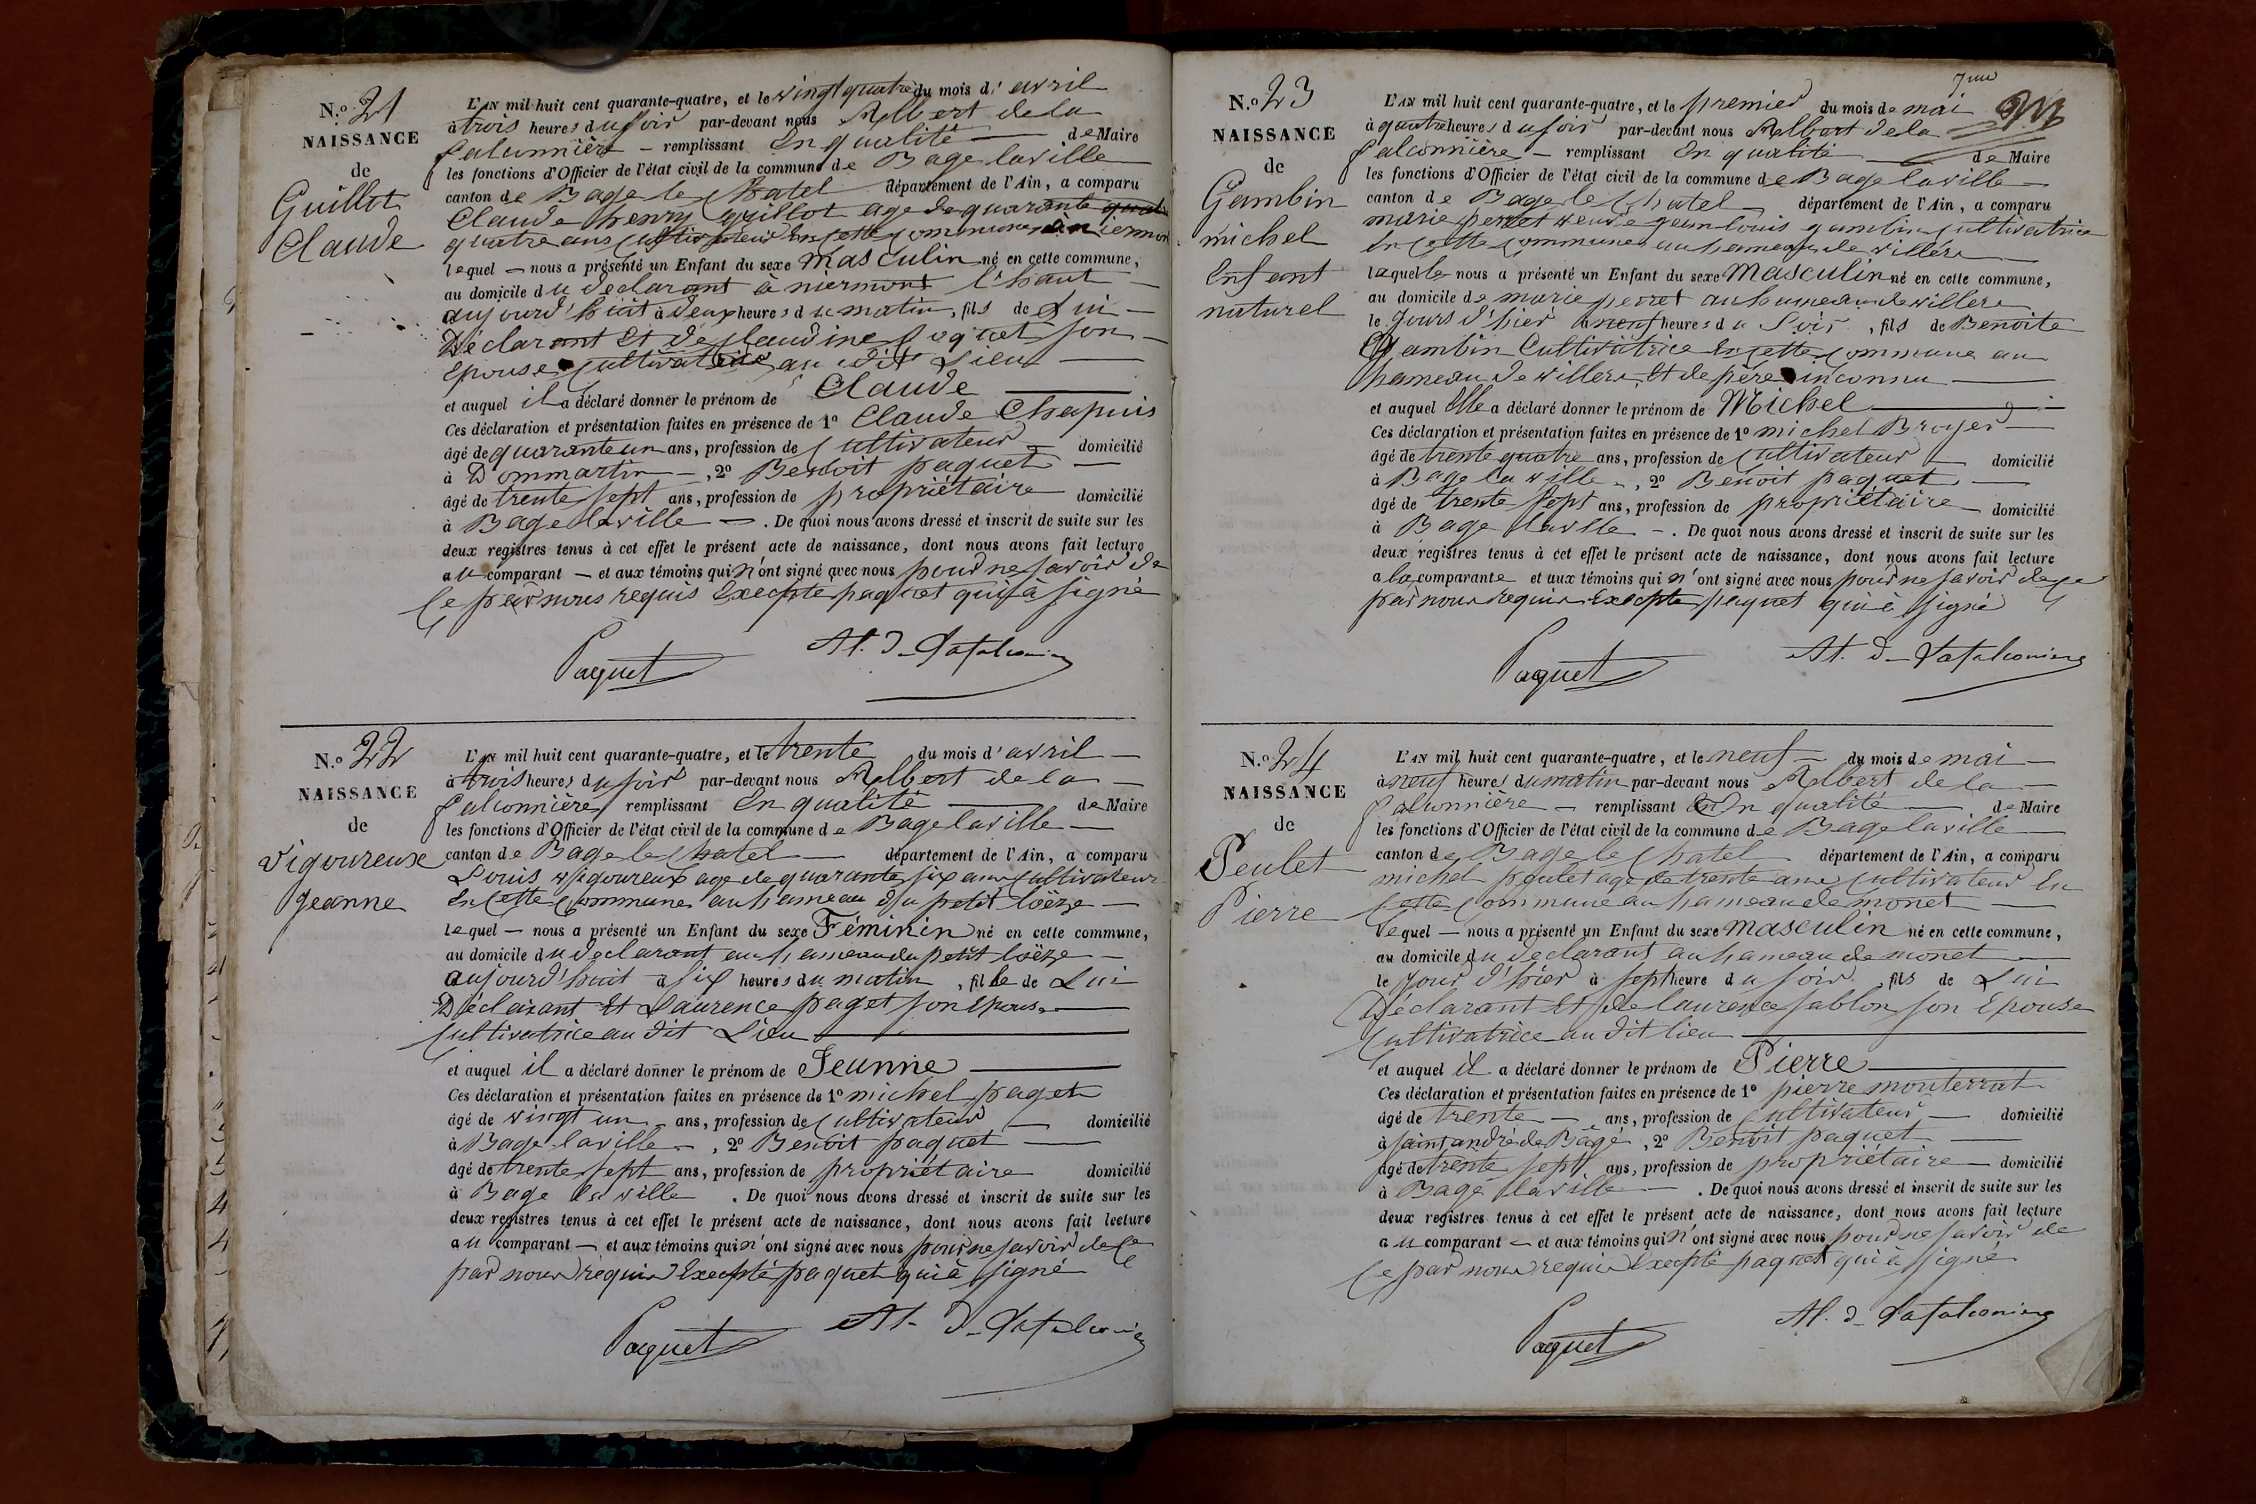 N.o 21
NAISSANCE
de
Guillot
Claude
L'AN mil huit cent quarante-quatre, et le vingt quatre du mois d'avril
à trois heures du soir par-devant nous Albert de la
falconnière — remplissant En qualité — de Maire
les fonctions d'Officier de l'état civil de la commune de Bage laville
canton de Bage le Chatel département de l'Ain, a comparu
Claude henry guillot age de quarante
quatre ans Cultivateur En cette Commune
lequel — nous a présenté un Enfant du sexe Masculin né en cette commune,
au domicile du declarant à niermont l'haut —
aujourd'huit à deux heures du matin, fils de Lui —
Déclarant Et de Claudine son —
Epouse Cultivatrice au dit Lieu —
et auquel il a déclaré donner le prénom de Claude
Ces déclaration et présentation faites en présence de 1o Claude Chapuis
âgé de quarante un ans, profession de Cultivateur — domicilié
à Dommartin —, 2o Benoit paquet —
âgé de trente sept ans, profession de propriétaire domicilié
à Bage laville —. De quoi nous avons dressé et inscrit de suite sur les
deux registres tenus à cet effet le présent acte de naissance, dont nous avons fait lecture
au comparant — et aux témoins qui n'ont signé avec nous pour ne savoir de
Ce par nous requis Excepte paquet qui à signé
Paquet At. D. Lafalconière
N.o 22
NAISSANCE
de
Vigoureux
Jeanne
L'AN mil huit cent quarante-quatre, et le trente du mois d'avril —
à trois heures du soir par-devant nous Albert de la —
falconnière remplissant En qualité — de Maire
les fonctions d'Officier de l'état civil de la commune de Bage laville —
canton de Bage le Chatel — département de l'Ain, a comparu
Louis Vigoureux age de quarante six ans Cultivateur
En Cette Commune au hameau du petit loëze —
lequel — nous a présenté un Enfant du sexe Féminin né en cette commune,
au domicile du declarant au hameau du petit loëze —
aujourd'huit à six heures du matin, fille de Lui
Déclarant Et Laurence paget son Epouse —
Cultivatrice au dit Lieu —
et auquel il a déclaré donner le prénom de Jeanne —
Ces déclaration et présentation faites en présence de 1o michel paget
âgé de vingt un — ans, profession de Cultivateur — domicilié
à Bage laville —, 2o Benoit paquet —
âgé de trente sept ans, profession de propriétaire domicilié
à Bage la ville. De quoi nous avons dressé et inscrit de suite sur les
deux registres tenus à cet effet le présent acte de naissance, dont nous avons fait lecture
au comparant — et aux témoins qui n'ont signé avec nous pour ne savoir de Ce
par nous requis Excepté paquet qui à signé
Paquet At. D. Lafalconière
7me
N.o 23
NAISSANCE
de
Gambin
michel
Enfant
naturel
L'AN mil huit cent quarante-quatre, et le premier du mois de mai
à quatre heures du soir par-devant nous Albert de la
falconnière — remplissant En qualité — de Maire
les fonctions d'Officier de l'état civil de la commune de Bage laville —
canton de Bage le Chatel — département de l'Ain, a comparu
marie perret veuve jean louis gambin Cultivatrice
En Cette Commune au hameau de villere —
laquelle nous a présenté un Enfant du sexe Masculin né en cette commune,
au domicile de marie perret au hameau de villere
le Jours d'hier à neuf heures du Soir, fils de Benoite
Gambin Cultivatrice En Cette Commune au
hameau de villere Et de père inconnu —
et auquel Elle a déclaré donner le prénom de Michel —
Ces déclaration et présentation faites en présence de 1o michel Broyer —
âgé de trente quatre ans, profession de Cultivateur — domicilié
à Bage la ville —, 2o Benoit paquet —
âgé de trente sept ans, profession de propriétaire — domicilié
à Bage laville —. De quoi nous avons dressé et inscrit de suite sur les
deux registres tenus à cet effet le présent acte de naissance, dont nous avons fait lecture
a la comparante et aux témoins qui n'ont signé avec nous pour ne savoir de Ce
par nous requis Excepte paquet qui à signé
Paquet At. D. Lafalconière
N.o 24
NAISSANCE
de
Peulet
Pierre
L'AN mil huit cent quarante-quatre, et le neuf — du mois de mai —
à neuf heures du matin par-devant nous Albert de la —
falconnière — remplissant En qualité — de Maire
les fonctions d'Officier de l'état civil de la commune de Bage laville —
canton de Bage le Chatel département de l'Ain, a comparu
michel peulet age de trente ans Cultivateur En
Cette Commune au hameau de monet —
lequel — nous a présenté un Enfant du sexe masculin né en cette commune,
au domicile du declarant au hameau de monet —
le Jour d'hier à sept heure du soir, fils de Lui
Déclarant Et de laurence sablon son Epouse
Cultivatrice au dit lieu —
et auquel il a déclaré donner le prénom de Pierre —
Ces déclaration et présentation faites en présence de 1o pierre monterrat
âgé de trente — ans, profession de Cultivateur — domicilié
à saint andré de Bâgé, 2o Benoit paquet —
âgé de trente sept ans, profession de propriétaire — domicilié
à Bagé laville —. De quoi nous avons dressé et inscrit de suite sur les
deux registres tenus à cet effet le présent acte de naissance, dont nous avons fait lecture
au comparant — et aux témoins qui n'ont signé avec nous pour ne savoir de
Ce par nous requis Excepté paquet qui à signé
Paquet At. D. Lafalconière